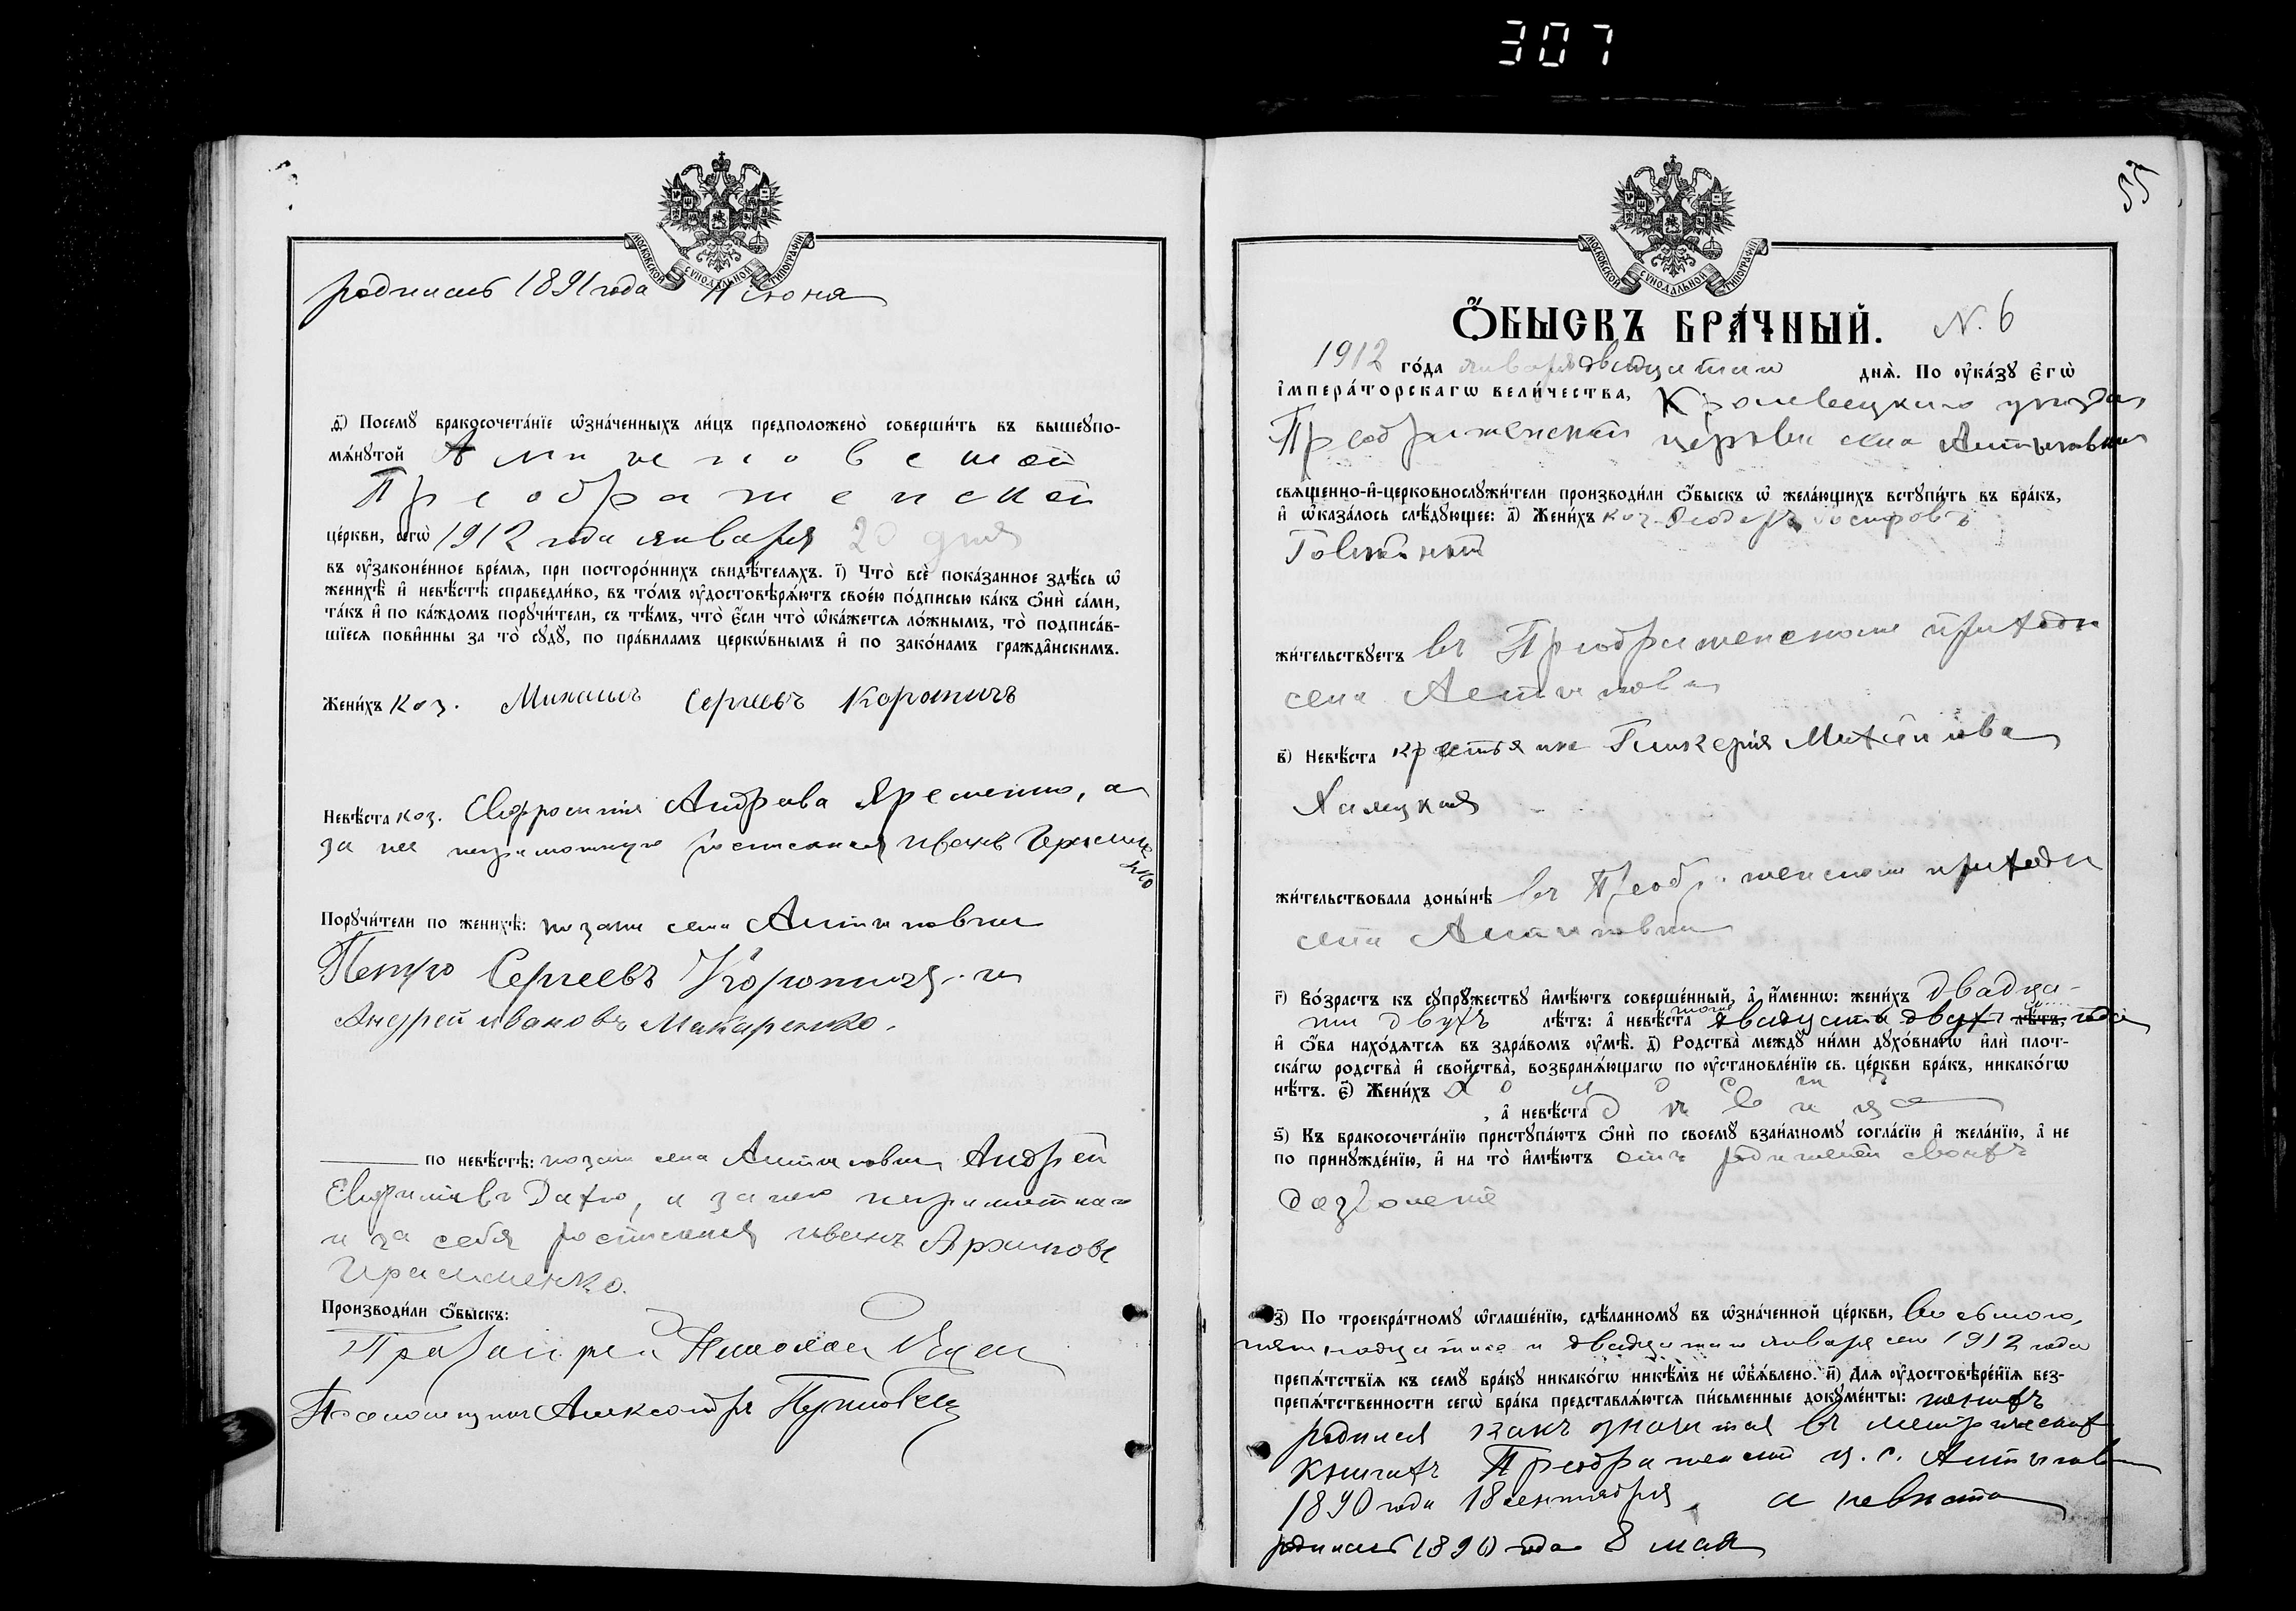 307
МОСКОВСКОЙ СѴНОДАЛЬНОЙ ТИПОГРАФІИ
родилась 1891 года 11 іюня
д҃) Посемꙋ бракосочета́нїе ѡ҆зна́ченныхъ ли́цъ предположено̀ соверши́ть въ вышеꙋпо-
мѧ́нꙋтой
Преображенской
це́ркви, сегѡ̀ 1912 года января 20 дня
въ ᲂу҆законе́нное вре́мѧ, при посторо́ннихъ свидѣ́телѧхъ. і҃) Что̀ всѐ пока́занное здѣ́сь ѡ҆
женихѣ̀ и҆ невѣ́стѣ справедли́во, въ то́мъ ᲂу҆достовѣрѧ́ютъ свое́ю по́дписью ка́къ ѻ҆нѝ са́ми,
та́къ и҆ по ка́ждомъ порꙋчи́тели, съ тѣ́мъ, что̀ є҆́сли что̀ ѡ҆ка́жетсѧ ло́жнымъ, то̀ подписа́в-
шїесѧ пови́нны за то̀ сꙋдꙋ̀, по пра́виламъ церкѡ́внымъ и҆ по зако́намъ гражда̑нскимъ.
Жени́хъ коз. Михаилъ Сергѣевъ Коротичъ
Невѣ́ста коз. Евфросинія Андреева Яременко, а
за нее неграмотную росписался Иванъ Герасиме
нко
Порꙋчи́тели по женихѣ̀: козаки села
Петро Сергеевъ Коротичъ и
Андрей Ивановъ Макаренко.
по невѣ́стѣ: козаки села Андрей
Дахно, и за него неграмотнаго
и за себя росписался Иванъ
Герасименко.
Производи́ли ѻ҆́быскъ:
Николай
Псаломщикъ Александръ
55
МОСКОВСКОЙ СѴНОДАЛЬНОЙ ТИПОГРАФІИ
Ѻ҆́БЫСКЪ БРА́ЧНЫЙ. N. 6
1912 го́да января двадцатаго днѧ̀. По ᲂу҆ка́зꙋ є҆гѡ̀
і҆мпера́торскагѡ вели́чества, Кролевецкаго уѣзда
Преображенской церкви села
свѧще́нно-и҆-церковнослꙋжи́тели производи́ли ѻ҆́быскъ ѡ҆ жела́ющихъ встꙋпи́ть въ бра́къ,
и҆ ѡ҆каза́лось слѣ́дꙋющее: а҃) Жени́хъ коз. Ѳеодоръ Іосифовъ
жи́тельствꙋетъ въ Преображенскомъ приходѣ
села
в҃) Невѣ́ста крестьянка Гликерія Михайлова
жи́тельствовала доны́нѣ въ Преображенскомъ приходѣ
села
г҃) Во́зрастъ къ сꙋпрꙋ́жествꙋ и҆мѣ́ютъ соверше́нный, а҆ и҆́меннѡ: жени́хъ двадца-
ти двухъ лѣ́тъ: а҆ невѣ́ста двадцати двухъ лѣ́тъ, года
и҆ ѻ҆́ба нахо́дѧтсѧ въ здра́вомъ ᲂу҆мѣ̀. д҃) Родства̀ междꙋ̀ ни́ми дꙋхо́внагѡ и҆лѝ плот-
ска́гѡ родства̀ и҆ сво́йства̀, возбранѧ́ющагѡ по ᲂу҆становле́нїю св. це́ркви бра́къ, никако́гѡ
нѣ́тъ. є҃) Жени́хъ холостъ
, а҆ невѣ́ста дѣвица
ѕ҃) Къ бракосочета́нїю пристꙋпа́ютъ ѻ҆нѝ по своемꙋ̀ взаи́мномꙋ согла́сїю и҆ жела́нїю, а҆ не
по принꙋжде́нїю, и҆ на то̀ и҆мѣ́ютъ отъ родителей своихъ
дозволеніе
з҃) По троекра́тномꙋ ѡ҆глаше́нїю, сдѣ́ланномꙋ въ ѡ҆зна́ченной це́ркви, восьмого,
пятнадцатаго и двадцатаго января сего 1912 года
препѧ́тствїѧ къ семꙋ̀ бра́кꙋ никако́гѡ никѣ́мъ не ѡ҆б̾ѧ́влено. и҃) Длѧ ᲂу҆достовѣре́нїѧ без-
препѧ́тственности сегѡ̀ бра́ка представлѧ́ютсѧ пи́сьменные докꙋме́нты: женихъ
родился какъ значится въ метрическихъ
книгахъ Преображенской ц. с.
1890 года 18 сентября, а невѣста
родилась 1890 года 8 мая